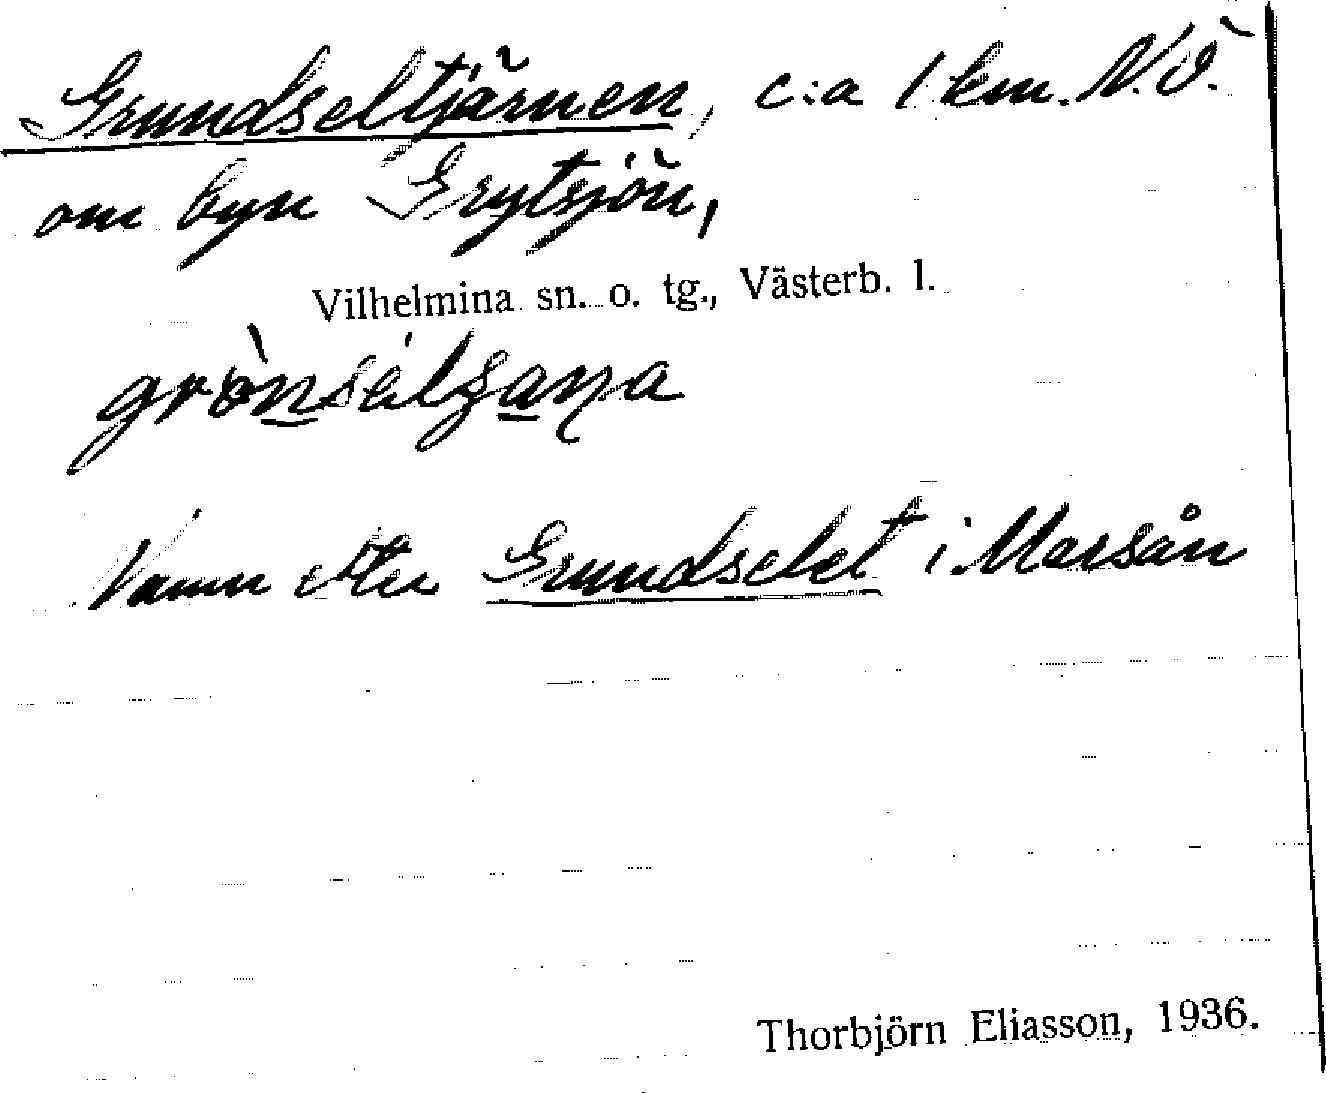 Grundseltjärnen, c:a 1 km. N.Ö.
om byn Grytsjön,
Vilhelmina sn. o. tg., Västerb. l.
Namn efter Grundselet i Marsån
Thorbjörn Eliasson, 1936.